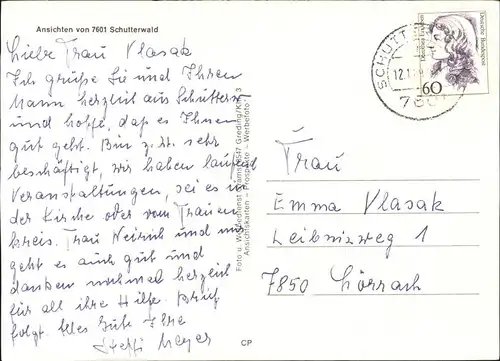 Ansichten von 7601 Schutterwald
Liebe Frau Vlasak
Ich grüße Sie und Ihren
Mann herzlich aus Schutterw.
und hoffe, daß es Ihnen
gut geht. Bin z.Zt. sehr
beschäftigt, wir haben laufend
Veranstaltungen, sei es in
der Kirche oder vom Frauen
kreis. Frau Weirich und mir
geht es auch gut und
danken nochmal herzlich
für all ihre Hilfe. Brief
folgt. Alles Gute Ihre
Steffi Meyer
Foto u. Werbedienst
Ansichtskarten – Prospekte – Werbefoto
CP
SCHUTT
12.1
760
Deutsche Bundespost
60
Frau
Emma Vlasak
Leibnizweg 1
7850 Lörrach